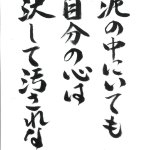 泥の中にいても
自分の心は
決して汚されな